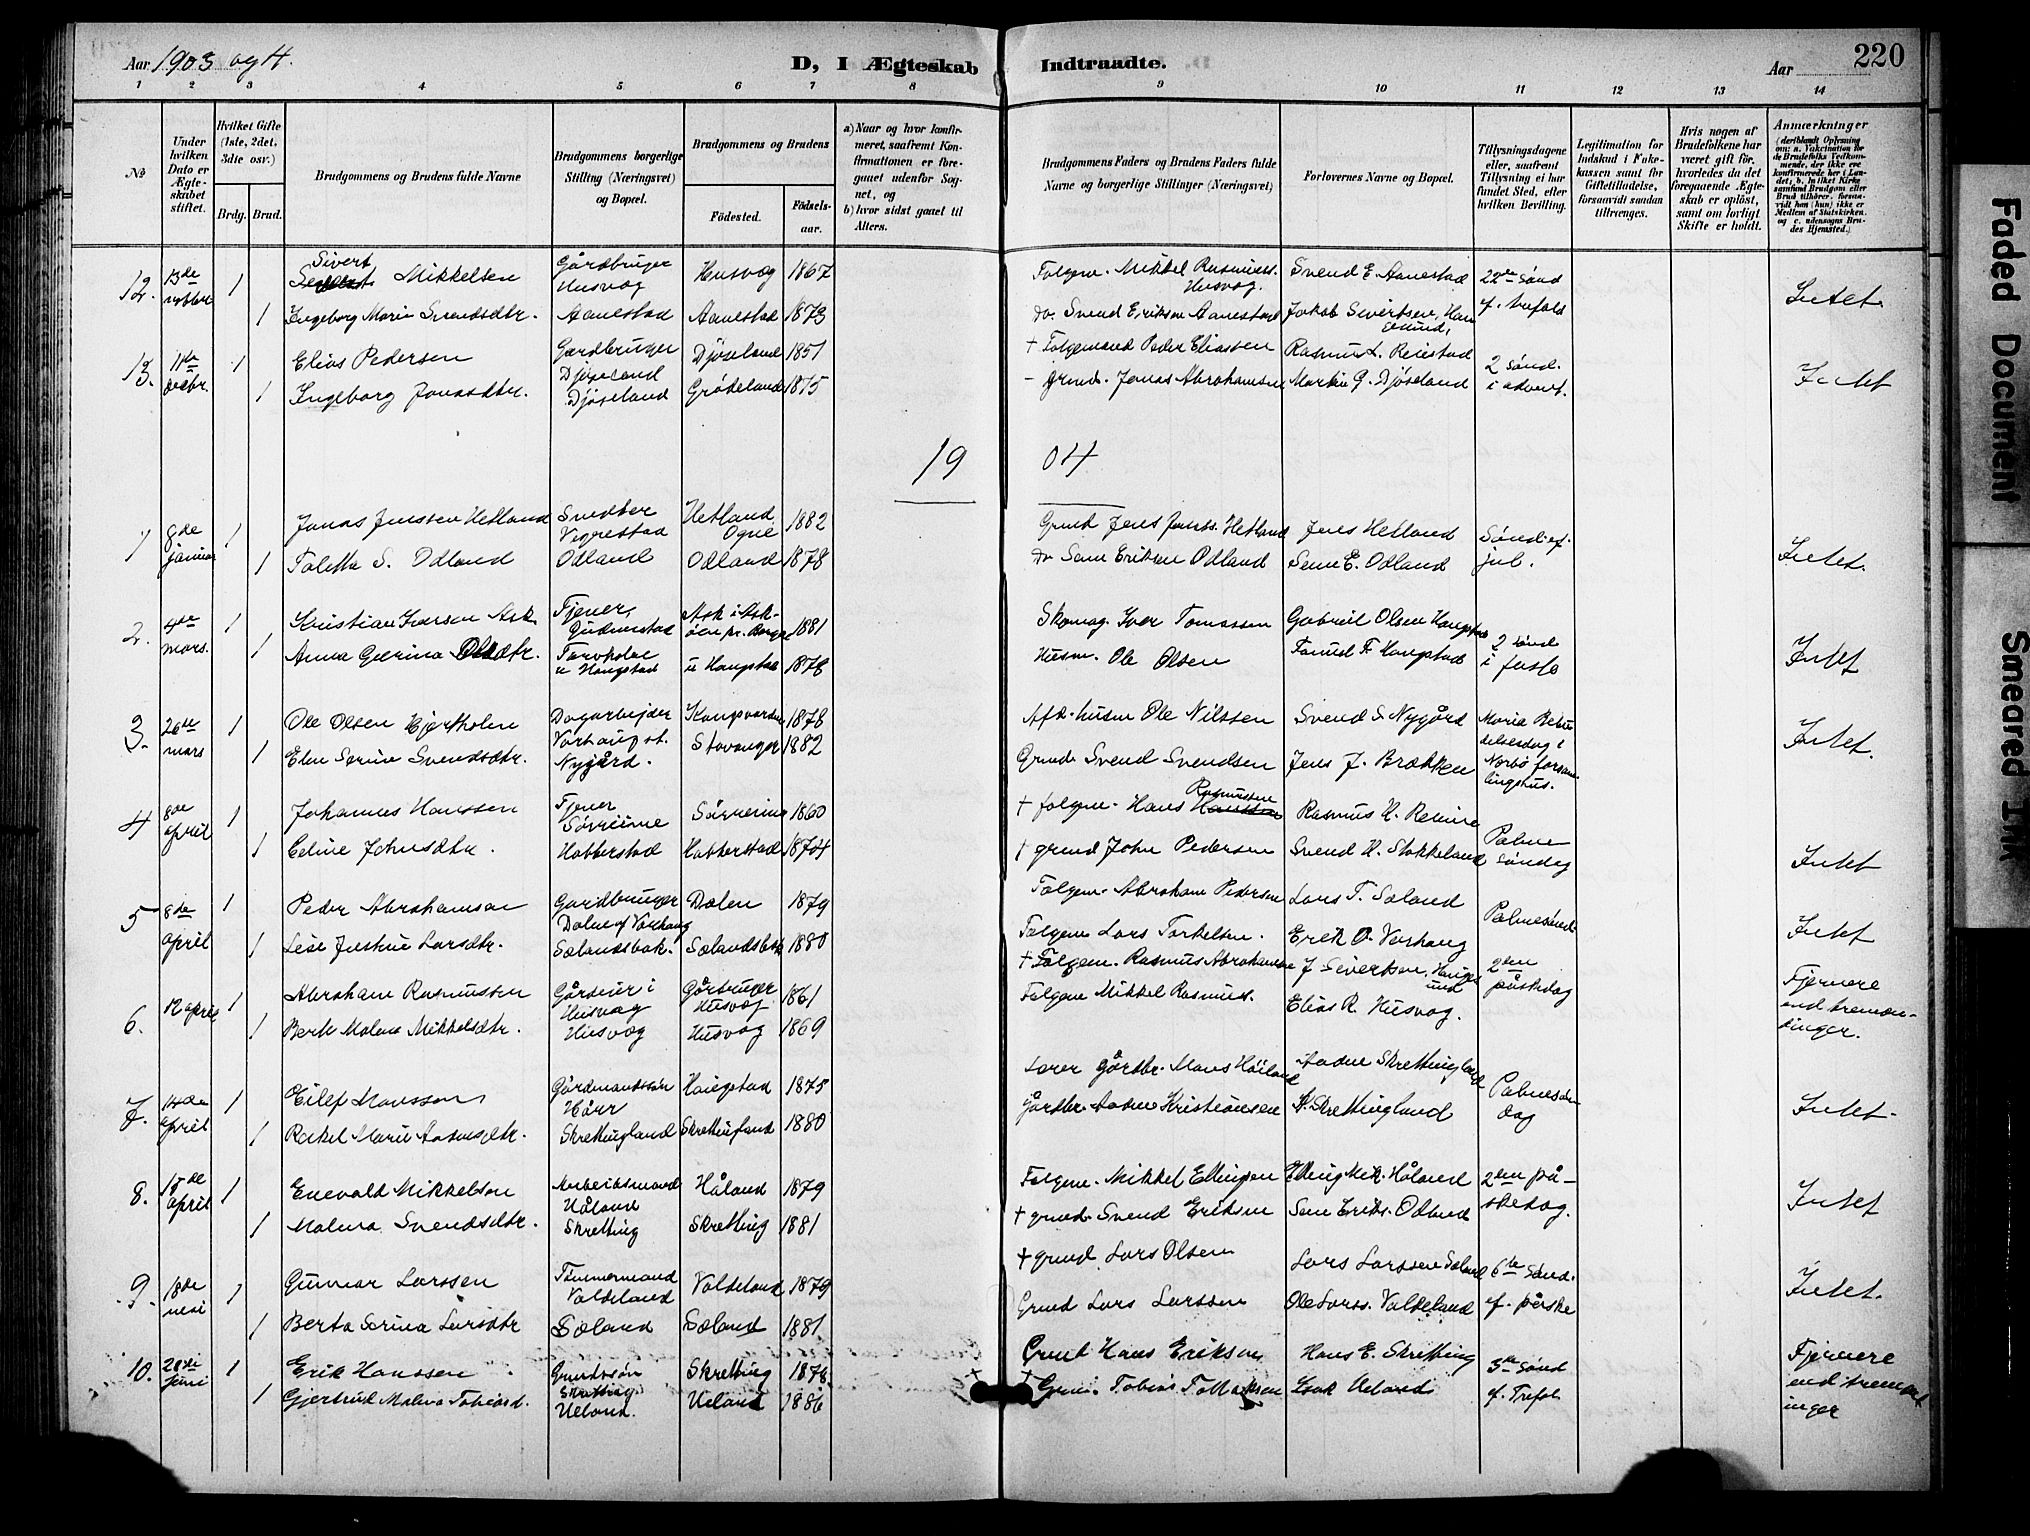 Aar 1903 og 4.
D, I Ægteskab Indtraadte.
Aar 220
1 2 3 4 5 6 7 8 9 10 11 12 13 14
No
Under hvilken Dato er Ægteskabet stiftet.
Hvilket Gifte (1ste, 2det, 3die osv.)
Brdg. Brud.
Brudgommens og Brudens fulde Navne
Brudgommens borgerlige Stilling (Næringsvei) og Bopæl.
Brudgommens og Brudens
Fødested. Fødselsaar.
a) Naar og hvor konfirmeret, saafremt Konfirmationen er foregaaet udenfor Sognet, og
b) hvor sidst gaaet til Alters.
Brudgommens Faders og Brudens Faders fulde Navne og borgerlige Stillinger (Næringsvei)
Forlovernes Navne og Bopæl.
Tillysningsdagene eller, saafremt Tillysning ei har fundet Sted, efter hvilken Bevilling.
Legitimation for Indskud i Enkekassen samt for Giftetilladelse, forsaavidt saadan tiltrænges.
Hvis nogen af Brudefolkene har været gift før, hvorledes da det foregaaende Ægteskab er opløst, samt om lovligt Skifte er holdt.
Anmærkninger (deriblandt Oplysning om: a. Vakcination for de Brudefolks Vedkommende, der ikke ere konfirmerede her i Landet; b. hvilket Kirkesamfund Brudgom eller Brud tilhører, forsaavidt han (hun) ikke er Medlem af Statskirken, og c. udensogns Brudes Hjemsted.)
12. 13de 1 Sivert Mikkelsen Gårdbruger Husvæg Husvæg 1867 Mikkel Rasmuss. Husvæg. Svend E. Aanestad 22de Sønd f. trefold Intet.
1 Ingeborg Marie Svendsdtr. Aanestad Aanestad 1873 do. Svend Eriksen Aanestad Jakob Sivertsen
13. 11te decbr. 1 Elias Pedersen Gardbruger Djøseland Djøseland 1851 + Følgemand Peder Eliassen Rasmus L. Reiestad 2 sønd. i advent. Intet
1 Ingeborg Jonasdtr. Djøseland Grødeland 1875 - grmd. Jonas Abrahamsen Martin G. Djøseland
1904
1 8de januar 1 Jonas Jenssen Hetland Snedker Vigrestad Hetland Ogne 1882 Grmd Jens Jonass. Hetland Jens Hetland Sønd. ef. jul. Intet.
1 Taletta S. Odland Odland Odland 1878 do Seme Eriksen Odland Seme E. Odland
2. 4de mars. 1 Kristian Iversen Ask Tjener, Ask i Askøen pr. Bergen 1881 Skomag. Iver Tomassen Gabriel Olsen 2 sønd i faste Intet
1 Anna Gurina Olsdtr. u Haugstad u Haugstad 1878 Husm. Ole Olsen F. Haugstad
3. 26de mars 1 Ole Olsen Hjertholen Dagarbejder Varhaug st. Kongsvarden 1878 Aftr. husm Ole Nilssen Svend S. Nygård Maria Bebudelsesdag i Nærbø forsamlingshus. Intet.
1 Elen Serine Svendsdtr. Nygård. Stavanger 1882 Grmd. Svend Svendsen Jens J. Brækken
4 8de april 1 Johannes Hanssen Tjener Sørreime Sørreime 1860 + følgem. Hans Rasmussen Rasmus H. Reime Palmesøndag Intet
1 Celine Johnsdtr. Hobberstad Hobberstad 1874 + grmd John Pedersen Svend H. Stokkeland
5 8de april 1 Peder Abrahamsen Gardbruger Dalen af Varhaug Dalen 1879 Følgem. Abraham Pedersen Lars T. Sæland Palmesønd. Intet
1 Lise Justine Larsdtr. Sælandsbak. Sælandsbak 1880 Følgem Lars Torkelsen. Erik O. Varhaug
6. 12 april 1 Abraham Rasmussen Gårdeier i Husvæg Husvæg 1861 + Følgem. Rasmus Abrahamsen J. Sivertsen, 2den påskedag Fjernere end tremændinger.
1 Berte Malene Mikkelsdtr. Husvæg Husvæg 1869 Følgem Mikkel Rasmuss. Elias R. Husvæg.
7. 14de april 1 Eilef Monsson Gårdmandssøn Hårr Haugstad 1875 Gårdbr. Mons Høiland Aadne Skrettingland Palmesøndag Intet.
1 Rakel Marie Aadnesdtr. Skrettingland Skrettingland 1880 Gårdbr. Aadne Kristiansen K. Skrettingland
8. 15de april 1 Enevald Mikkelsen Arbeidsmand Håland Håland 1879 Følgem. Mikkel Ellingsen Elling Mik. Håland 2den påskedag. Intet
1 Malena Svendsdtr. Skretting Skretting 1881 + grmd. Svend Eriksen Seme Eriks. Odland
9. 18de mai 1 Gunnar Larssen Tømmermand Valdeland Valdeland 1879 + grmd Lars Olsen Lars Larssen Sæland 6te sønd. f. påske Intet.
1 Berta Serina Larsdtr Sæland Sæland 1881 Grmd Lars Larssen Ole Larss. Valdeland
10. 28de juni 1 Erik Hanssen Grmdssøn Skretting Skretting 1878 Grmd Hans Eriksen Hans E. Skretting 3de sønd f. Trefol. Fjernere end tremændinger
1 Gjertrud Malene Tobiasd. Ueland. Ueland 1886 Grmd. Tobias Tollaksen Isak Ueland
Faded Document
Smeared Ink